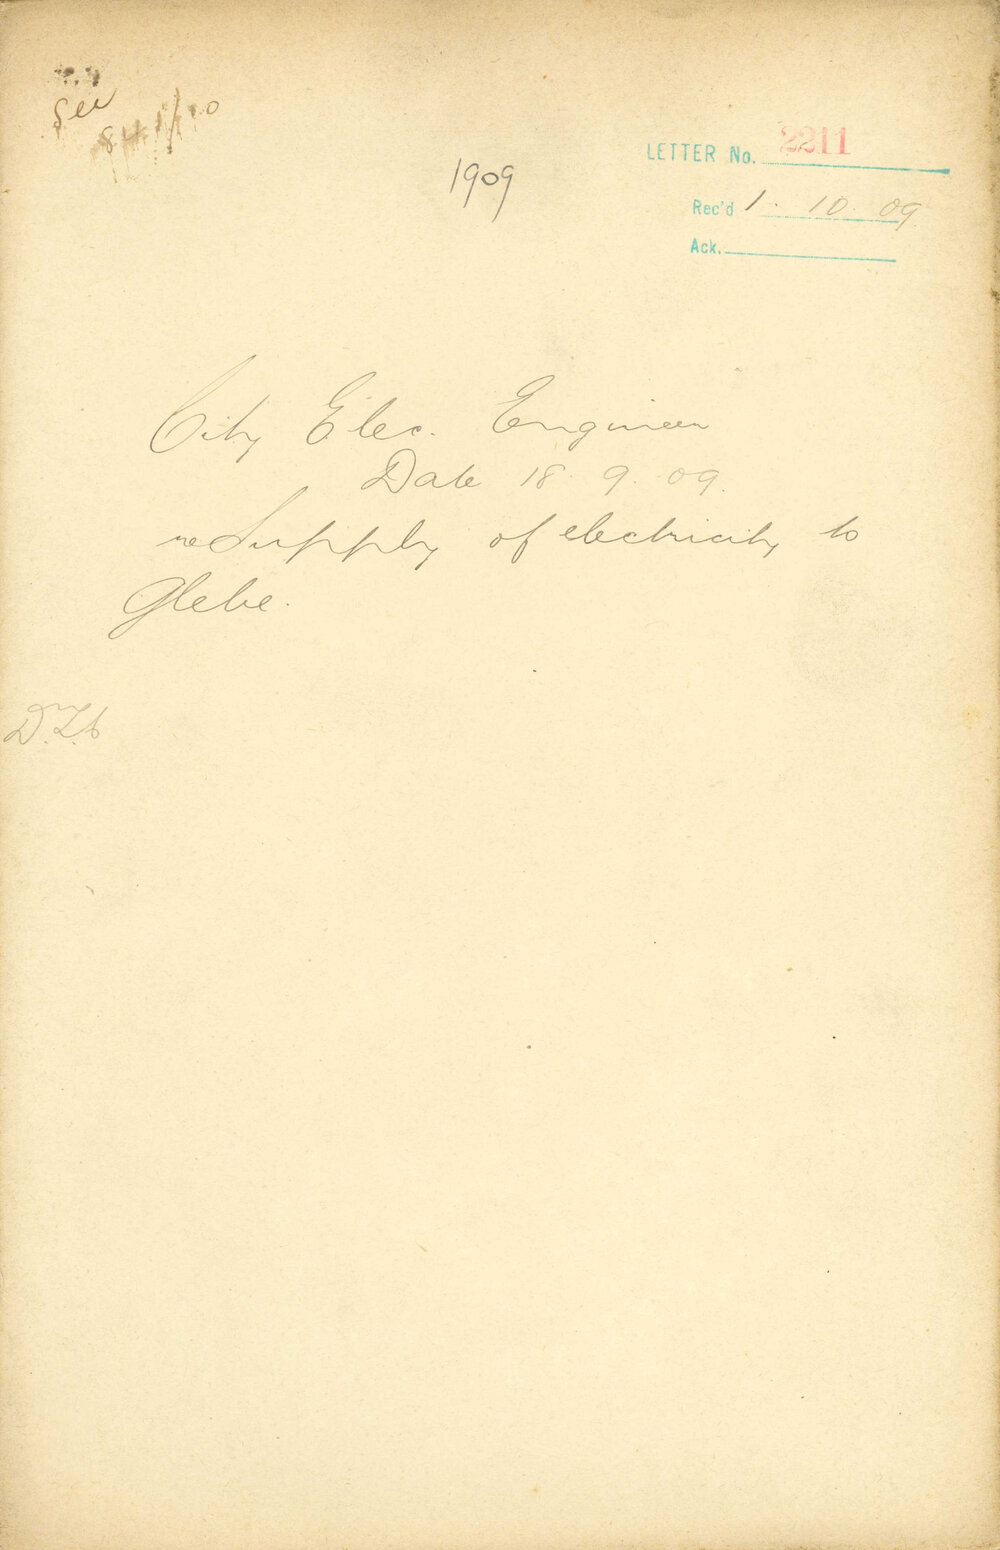 See
1909
LETTER No. 2211
Rec'd 1. 10. 09
Ack.
City Elec. Engineer
Date 18. 9. 09.
re Supply of electricity to
Glebe.